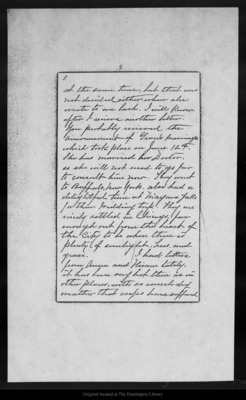 5
at the same time, but that was
not decided either when she
wrote to me last. I will know
after I receive another letter.
You probably received the
announcement of marriage
which took place on June 12th.
She has married her Doctor,
so she will not need to go far
to consult him now. They went
to Buffalo, New York. also had a
delightful time at Niagara Falls
for their Wedding trip. They are
nicely settled in Chicago, far
enough out from the heart of
the City to be where there is
plenty of sunlight, trees and
grass. I had letters
from Anna and lately.
it has been very hot there as in
other places, with so much dry
weather that crops have suffered
Original located at The Huntington Library